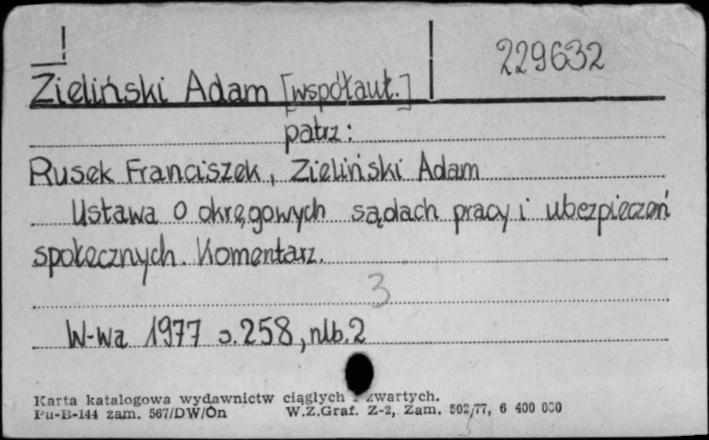 229632
Zieliński Adam [współaut.]
patrz:
Rusek Franciszek, Zieliński Adam
Ustawa o okręgowych sądach pracy i ubezpieczeń
społecznych. Komentarz.
3
W-wa 1977 s.258, nlb.2
Karta katalogowa wydawnictw ciągłych i zwartych.
Pu-B-144 zam. 567/DW/On W.Z.Graf. Z-2, Zam. 502/77, 6 400 000